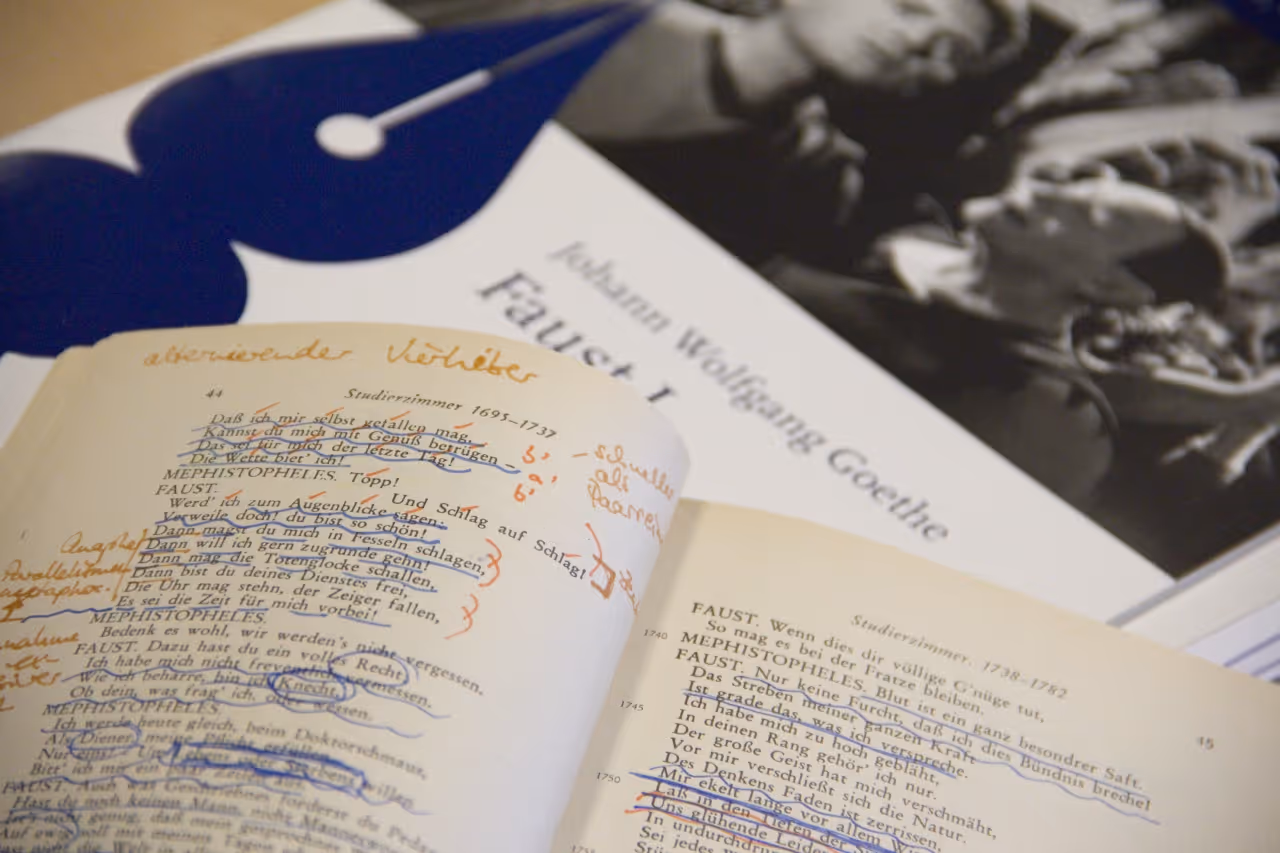 Johann Wolfgang Goethe
Faust I
alternierender Vierheber
44
Studierzimmer 1695–1737
Daß ich mir selbst gefallen mag,
Kannst du mich mit Genuß betrügen –
Das sei für mich der letzte Tag!
Die Wette biet' ich!
MEPHISTOPHELES. Topp!
FAUST.
Und Schlag auf Schlag!
Werd' ich zum Augenblicke sagen:
Verweile doch! du bist so schön!
Dann magst du mich in Fesseln schlagen,
Dann will ich gern zugrunde gehn!
Dann mag die Totenglocke schallen,
Dann bist du deines Dienstes frei,
Die Uhr mag stehn, der Zeiger fallen,
Es sei die Zeit für mich vorbei!
MEPHISTOPHELES.
Bedenk es wohl, wir werden's nicht vergessen.
FAUST. Dazu hast du ein volles Recht
Ich habe mich nicht freventlich vermessen.
Wie ich beharre, bin ich Knecht,
Ob dein, was frag' ich, oder wessen.
MEPHISTOPHELES
Ich werde heute gleich, beim Doktorschmaus,
Als Diener meine
Nur eins!
Bitt' ich mir ein paar Zeilen aus.
FAUST. Auch was Geschriebnes forderst du
Hast du noch keinen Mann, nicht
Ist's nicht genug, daß mein gesprochnes
Auf ewig soll mit meinen Tagen
b'
a'
b'
– schneller
als
Paarrei
Studierzimmer. 1738–1782
45
FAUST. Wenn dies dir völlige G'nüge tut,
So mag es bei der Fratze bleiben.
1740
MEPHISTOPHELES. Blut ist ein ganz besondrer Saft.
FAUST. Nur keine Furcht, daß ich dies Bündnis breche!
Das Streben meiner ganzen Kraft
Ist grade das, was ich verspreche.
Ich habe mich zu hoch gebläht,
1745
In deinen Rang gehör' ich nur.
Der große Geist hat mich verschmäht,
Vor mir verschließt sich die Natur.
Des Denkens Faden ist zerrissen,
Mir ekelt lange vor allem
1750
Laß in den Tiefen der
Uns glühende
In undurchdrun
Sei jedes